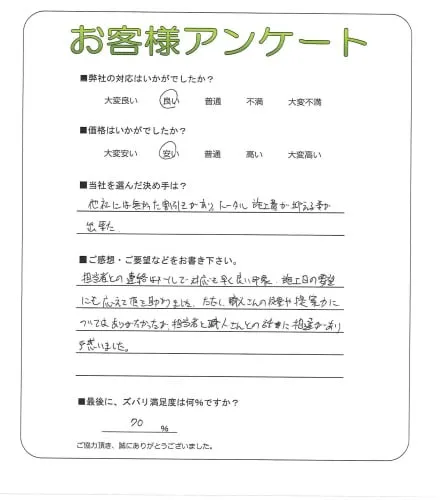 お客様アンケート
■弊社の対応はいかがでしたか？
大変良い 良い 普通 不満 大変不満
■価格はいかがでしたか？
大変安い 安い 普通 高い 大変高い
■当社を選んだ決め手は？
他社には無かった割引きがあり、トータル施工費が抑える事が
出来た
■ご感想・ご要望などをお書き下さい。
担当者との連絡はメールで対応も早く良い印象、施工日の要望
にも応えて頂き助かりました。ただし、職人さんの
については担当者と職人さんとの話に相違があり
戸惑いました。
■最後に、ズバリ満足度は何％ですか？
70 ％
ご協力頂き、誠にありがとうございました。